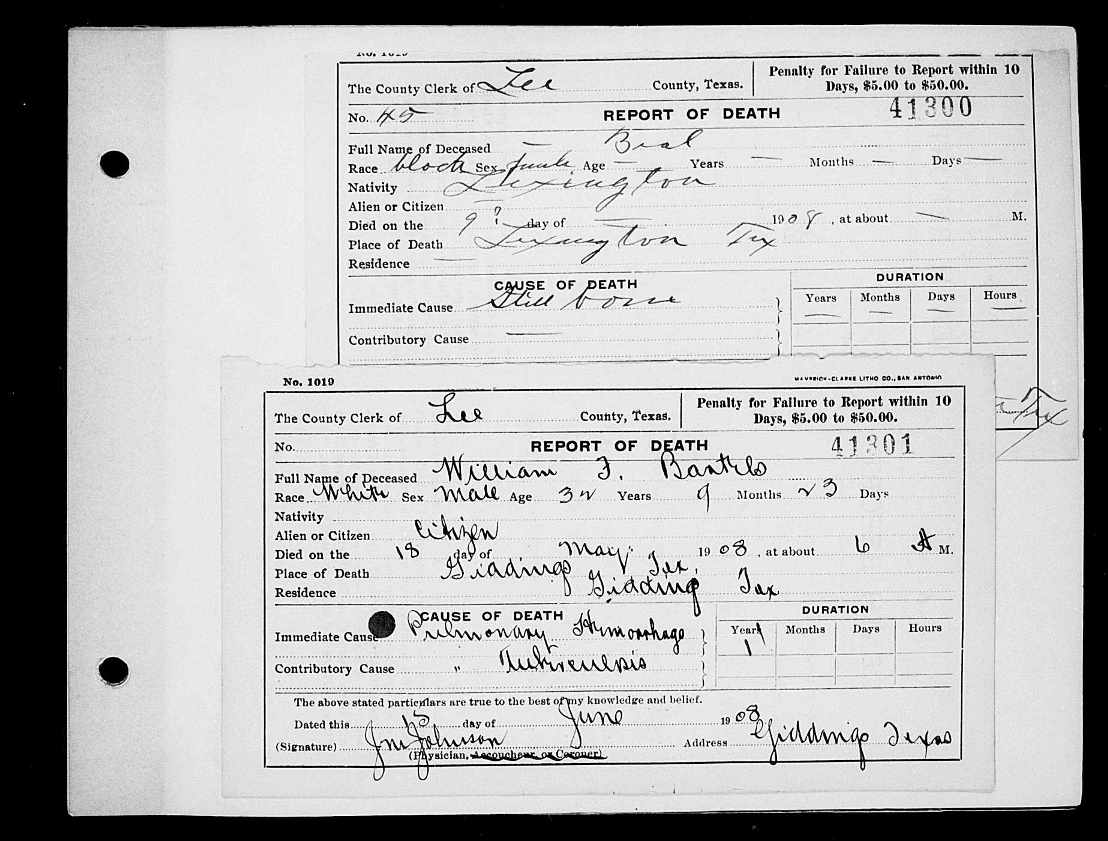 No. 1019
The County Clerk of Lee County, Texas. Penalty for Failure to Report within 10 Days, $5.00 to $50.00.
No. 45 REPORT OF DEATH 41300
Full Name of Deceased — Beal
Race black Sex female Age — Years — Months — Days —
Nativity Lexington
Alien or Citizen —
Died on the 9? day of — 1908, at about — M.
Place of Death Lexington Tex
Residence —
CAUSE OF DEATH DURATION
Years Months Days Hours
Immediate Cause Still born — — — —
Contributory Cause —
Tex
No. 1019 MAVERICK-CLARKE LITHO CO., SAN ANTONIO
The County Clerk of Lee County, Texas. Penalty for Failure to Report within 10 Days, $5.00 to $50.00.
No. REPORT OF DEATH 41301
Full Name of Deceased William F. Bartels
Race White Sex Male Age 32 Years 9 Months 23 Days
Nativity
Alien or Citizen Citizen
Died on the 18 day of May. 1908, at about 6 A M.
Place of Death Giddings Tex.
Residence Gidding Tex
CAUSE OF DEATH DURATION
Years Months Days Hours
Immediate Cause Pulmonary Hemorrhage 1
Contributory Cause " Tuberculosis
The above stated particulars are true to the best of my knowledge and belief.
Dated this 15 day of June 1908
(Signature) Jm Johnson Address Giddings Texas
(Physician, Accoucheur, or Coroner)